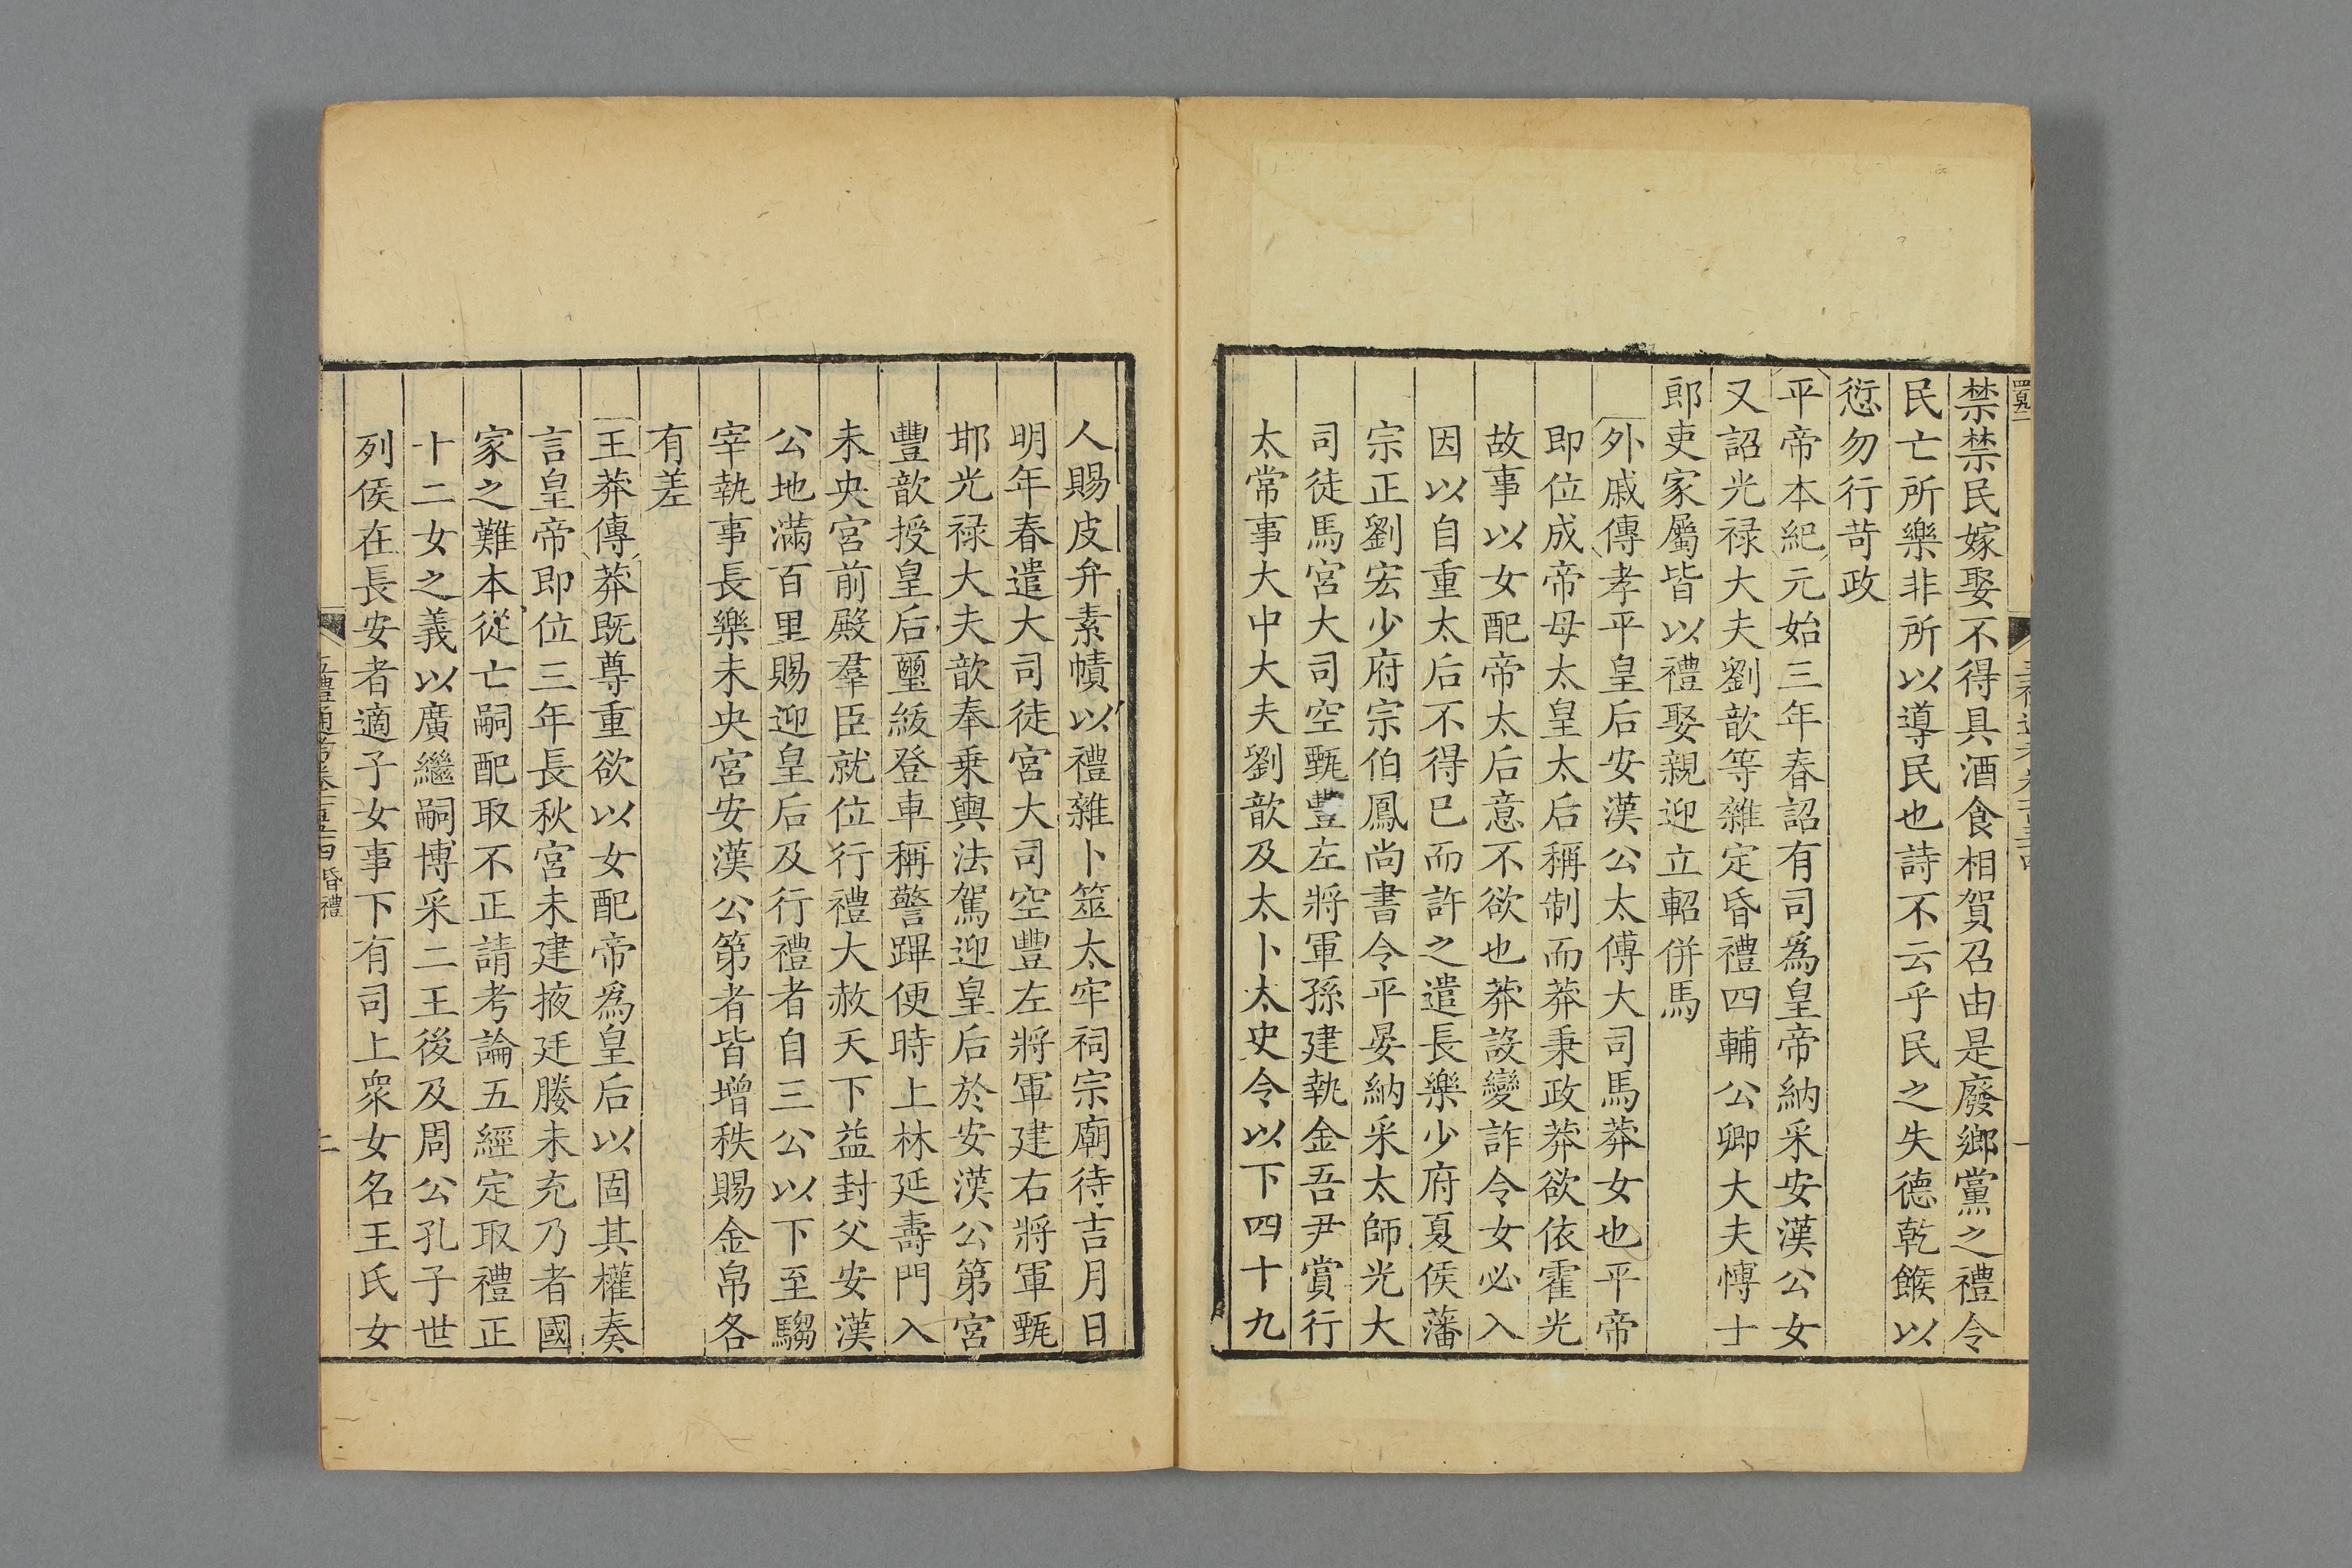 禁禁民嫁娶不得具酒食相賀召由是廢鄉黨之禮令
民亡所樂非所以導民也詩不云乎民之失德乾餱以
愆勿行苛政
平帝本紀元始三年春詔有司爲皇帝納采安漢公女
又詔光禄大夫劉歆等雜定昏禮四輔公卿大夫愽士
郎吏家屬皆以禮娶親迎立軺併馬
外戚傳孝平皇后安漢公太傅大司馬莽女也平帝
即位成帝母太皇太后稱制而莽秉政莽欲依霍光
故事以女配帝太后意不欲也莽設變詐令女必入
因以自重太后不得已而許之遣長樂少府夏侯藩
宗正劉宏少府宗伯鳳尚書令平晏納采太師光大
司徒馬宮大司空甄豐左將軍孫建執金吾尹賞行
太常事大中大夫劉歆及太卜太史令以下四十九
人賜皮弁素幘以禮雜卜筮太牢祠宗廟待吉月日
明年春遣大司徒宮大司空豐左將軍建右將軍甄
邯光禄大夫歆奉乗輿法駕迎皇后於安漢公第宮
豐歆授皇后璽紱登車稱警蹕便時上林延壽門入
未央宮前殿羣臣就位行禮大赦天下益封父安漢
公地滿百里賜迎皇后及行禮者自三公以下至騶
宰執事長樂未央宮安漢公第者皆增秩賜金帛各
有差
王莽傳莽既尊重欲以女配帝爲皇后以固其權奏
言皇帝即位三年長秋宮未建掖廷媵未充乃者國
家之難本從亡嗣配取不正請考論五經定取禮正
十二女之義以廣繼嗣博采二王後及周公孔子世
列侯在長安者適子女事下有司上衆女名王氏女
五禮通考卷一百五十四 昏禮